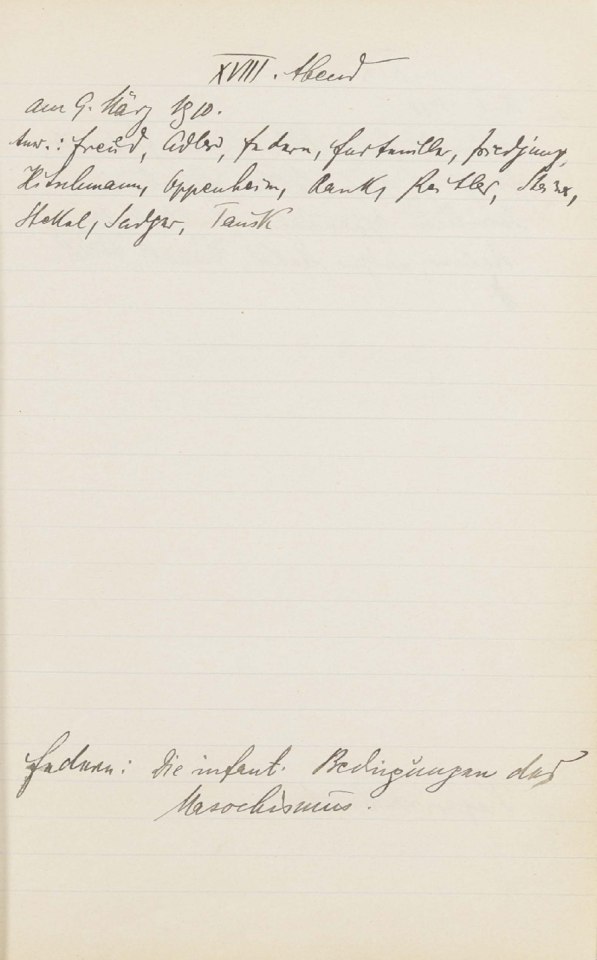 XVIII. Abend
am 9. März 1910.
Anw.: Freud, Adler, Federn, Furtmüller, Friedjung,
Hitschmann, Oppenheim, Rank, Reitler, Steiner,
Stekel, Sadger, Tausk
Federn: Die infant. Bedingungen des
Masochismus.